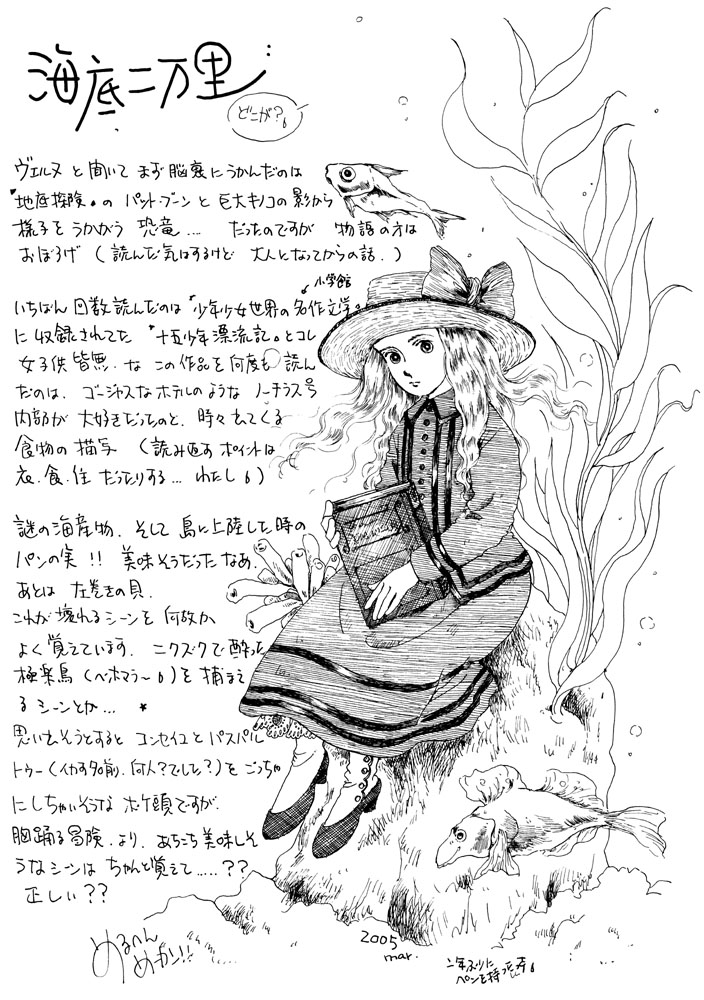 海底二万里
どこが?
ヴェルヌ と 聞いて まず 脳裏 にうかんだのは
『地底探険』の パット・ブーン と 巨大キノコの 影から
様子を うかがう 恐竜… だったのですが 物語の方は
おぼろげ (読んだ気はするけど 大人となってからの話.)
小学館
いちばん 回数 読んだのは『少年少女世界の名作文学』
に 収録されてた 『十五少年漂流記』とコレ
女子供 皆無. な この作品を 何度も 読ん
だのは、 ゴージャスな ホテルのような ノーチラス号
内部が 大好きだったのと、時々 出てくる
食物の 描写 (読み返す ポイントは
衣.食.住 だったりする… わたし)
謎の海産物. そして 島に上陸した時の
パンの実 !! 美味そうだった なあ.
あとは 左巻きの貝.
これが 壊れるシーンを 何故か
よく 覚えています. ニクズクで 酔った
極楽鳥 (へホマラ〜) を 捕まえ
る シーンとか…
思い出そうとすると コンセイユと パスパル
トゥー (イカす名前. 何人?でした?) を ごっちゃ
にしちゃいそうな ボケ頭ですが.
胸踊る冒険. より. あちこち 美味しそ
うなシーンは ちゃんと覚えて……??
正しい??
めるへん
めーかー!!
2005
mar.
二年ぶりに
ペンを持った